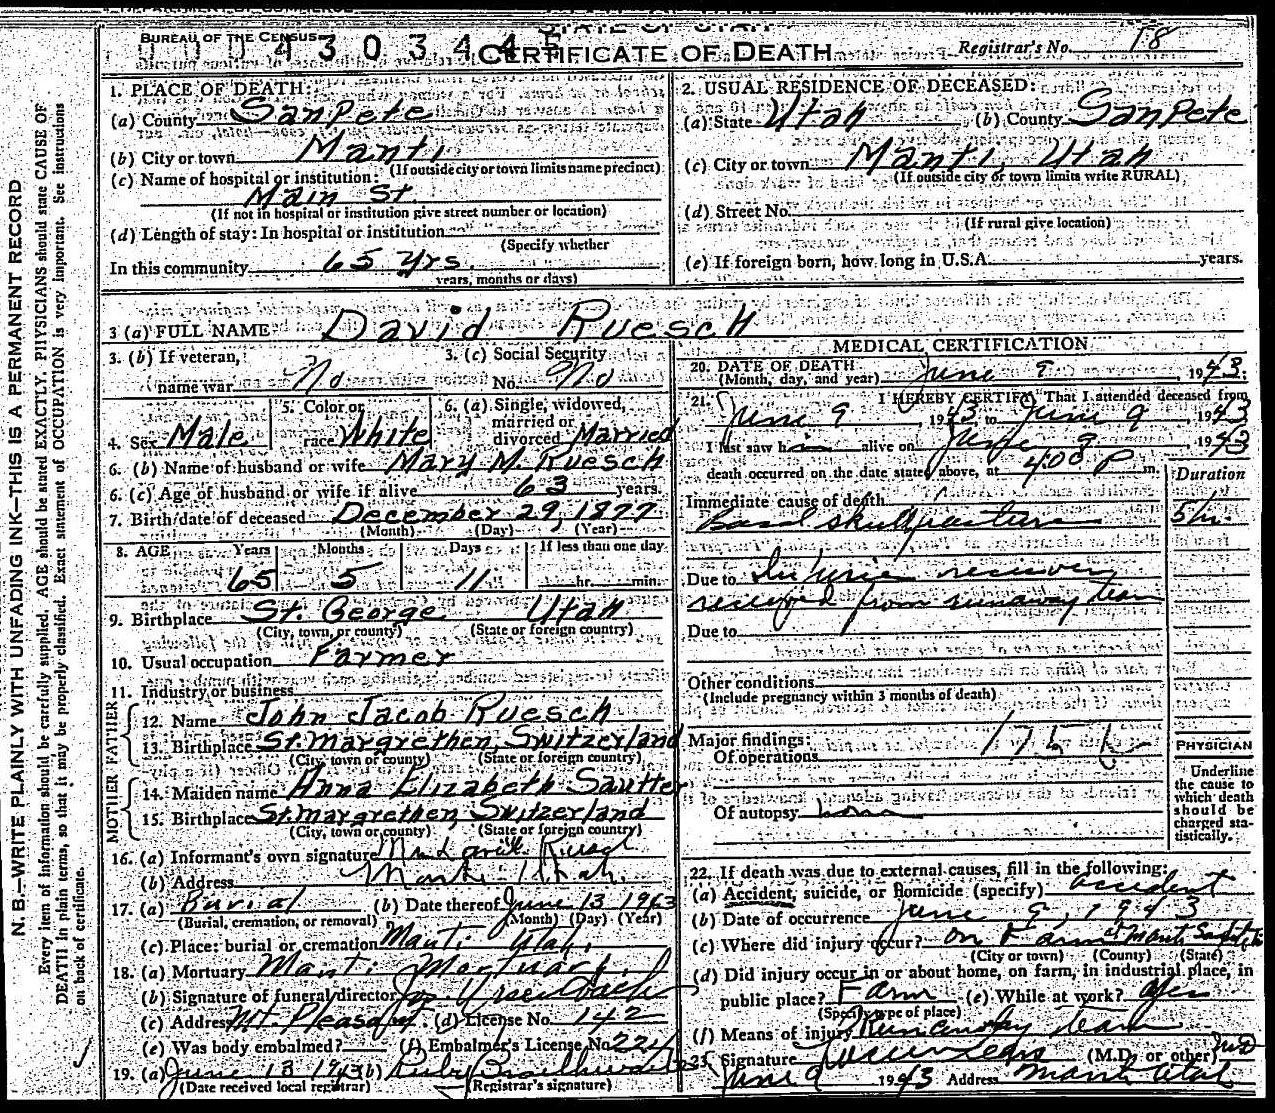 STATE OF UTAH
BUREAU OF THE CENSUS
CERTIFICATE OF DEATH
Registrar's No. 18
N. B.—WRITE PLAINLY WITH UNFADING INK—THIS IS A PERMANENT RECORD
Every item of information should be carefully supplied. AGE should be stated EXACTLY. PHYSICIANS should state CAUSE OF
DEATH in plain terms, so that it may be properly classified. Exact statement of OCCUPATION is very important. See instructions
on back of certificate.
1. PLACE OF DEATH:
(a) County Sanpete
(b) City or town Manti
(If outside city or town limits name precinct)
(c) Name of hospital or institution:
Main St.
(If not in hospital or institution give street number or location)
(d) Length of stay: In hospital or institution
(Specify whether
In this community 65 yrs.
years, months or days)
2. USUAL RESIDENCE OF DECEASED:
(a) State Utah (b) County Sanpete
(c) City or town Manti, Utah
(If outside city or town limits write RURAL)
(d) Street No.
(If rural give location)
(e) If foreign born, how long in U.S.A. years.
3 (a) FULL NAME David Ruesch
3. (b) If veteran, name war No
3. (c) Social Security No. No
4. Sex Male
5. Color or race White
6. (a) Single, widowed, married or divorced Married
6. (b) Name of husband or wife Mary M. Ruesch
6. (c) Age of husband or wife if alive 63 years.
7. Birth date of deceased December 29, 1877
(Month) (Day) (Year)
8. AGE Years Months Days If less than one day
65 5 11 hr. min.
9. Birthplace St. George Utah
(City, town, or county) (State or foreign country)
10. Usual occupation Farmer
11. Industry or business
FATHER
12. Name John Jacob Ruesch
13. Birthplace St. Margrethen, Switzerland
(City, town or county) (State or foreign country)
MOTHER
14. Maiden name Anna Elizabeth Sautter
15. Birthplace St. Margrethen, Switzerland
(City, town or county) (State or foreign country)
16. (a) Informant's own signature Ruesch
(b) Address Manti Utah.
17. (a) Burial (b) Date thereof June 13 1943
(Burial, cremation, or removal) (Month) (Day) (Year)
(c) Place: burial or cremation Manti Utah.
18. (a) Mortuary Manti Mortuary
(b) Signature of funeral director
(c) Address Mt. Pleasant. (d) License No. 142
(e) Was body embalmed? (f) Embalmer's License No. 224
19. (a) June 13 1943 (b) Ruby Braithwaite
(Date received local registrar) (Registrar's signature)
MEDICAL CERTIFICATION
20. DATE OF DEATH
(Month, day, and year) June 9 1943.
21. I HEREBY CERTIFY That I attended deceased from
June 9 1943 to June 9 1943
I last saw him alive on June 9 1943
death occurred on the date stated above, at 4:00 P m.
Duration
Immediate cause of death
Basal skull fracture 5 hr.
Due to Injuries
received from runaway team
Due to
Other conditions
(Include pregnancy within 3 months of death)
Major findings:
Of operations
Of autopsy none
PHYSICIAN
Underline
the cause to
which death
should be
charged sta-
tistically.
22. If death was due to external causes, fill in the following:
(a) Accident, suicide, or homicide (specify) accident
(b) Date of occurrence June 9, 1943
(c) Where did injury occur? on Farm at Manti
(City or town) (County) (State)
(d) Did injury occur in or about home, on farm, in industrial place, in
public place? Farm (e) While at work? Yes
(Specify type of place)
(f) Means of injury Runaway team
23. Signature (M.D. or other) MD
June 9 1943 Address Manti Utah